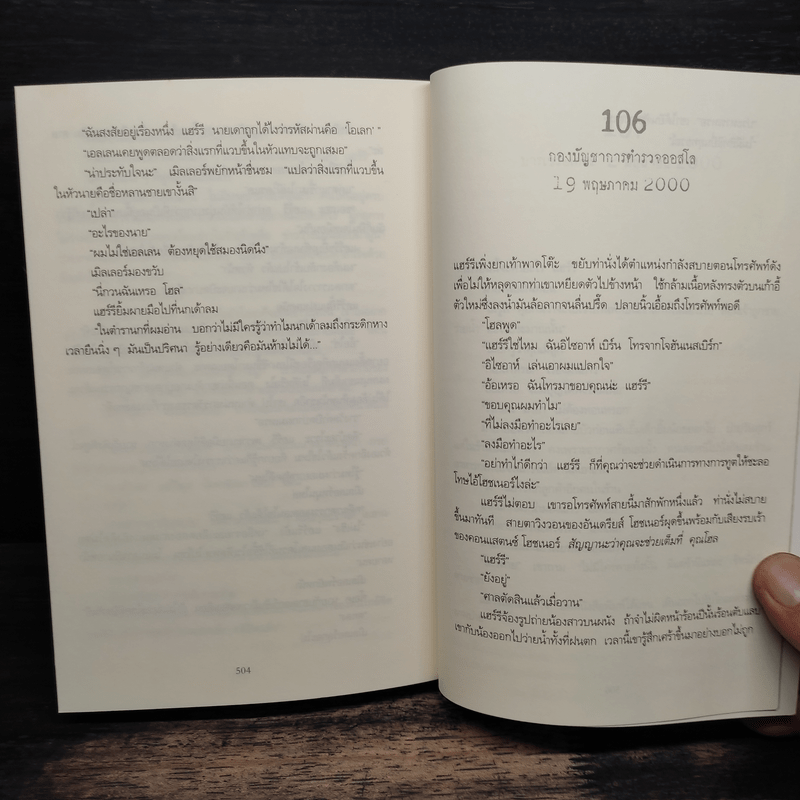 "ฉันสงสัยอยู่เรื่องหนึ่ง แฮร์รี นายเดาถูกได้ไงว่ารหัสผ่านคือ 'โอเลก' "
"เอลเลนเคยพูดตลอดว่าสิ่งแรกที่แวบขึ้นในหัวแทบจะถูกเสมอ"
"น่าประทับใจนะ" เมิลเลอร์พยักหน้าชื่นชม "แปลว่าสิ่งแรกที่แวบขึ้น
ในหัวนายคือชื่อหลานชายเขางั้นสิ"
"เปล่า"
"อะไรของนาย"
"ผมไม่ใช่เอลเลน ต้องหยุดใช้สมองนิดนึง"
เมิลเลอร์มองขวับ
"นี่กวนฉันเหรอ โฮล"
แฮร์รียิ้มผายมือไปที่นกเด้าลม
"ในตำรานกที่ผมอ่าน บอกว่าไม่มีใครรู้ว่าทำไมนกเด้าลมถึงกระดิกหาง
เวลายืนนิ่ง ๆ มันเป็นปริศนา รู้อย่างเดียวคือมันห้ามไม่ได้..."
504
106
กองบัญชาการตำรวจออสโล
19 พฤษภาคม 2000
แฮร์รีเพิ่งยกเท้าพาดโต๊ะ ขยับท่านั่งได้ตำแหน่งกำลังสบายตอนโทรศัพท์ดัง
เพื่อไม่ให้หลุดจากท่าเขาเหยียดตัวไปข้างหน้า ใช้กล้ามเนื้อหลังทรงตัวบนเก้าอี้
ตัวใหม่ซึ่งลงน้ำมันล้อลากจนลื่นปรี๊ด ปลายนิ้วเอื้อมถึงโทรศัพท์พอดี
"โฮลพูด"
"แฮร์รีใช่ไหม ฉันอิไซอาห์ เบิร์น โทรจากโจฮันเนสเบิร์ก"
"อิไซอาห์ เล่นเอาผมแปลกใจ"
"อ้อเหรอ ฉันโทรมาขอบคุณน่ะ แฮร์รี"
"ขอบคุณผมทำไม"
"ที่ไม่ลงมือทำอะไรเลย"
"ลงมือทำอะไร"
"อย่าทำไก๋ดีกว่า แฮร์รี ก็ที่คุณว่าจะช่วยดำเนินการทางการทูตให้ชะลอ
โทษไอ้โฮชเนอร์ไงล่ะ"
แฮร์รีไม่ตอบ เขารอโทรศัพท์สายนี้มาสักพักหนึ่งแล้ว ท่านั่งไม่สบาย
ขึ้นมาทันที สายตาวิงวอนของอันเดรียส์ โฮชเนอร์ผุดขึ้นพร้อมกับเสียงรบเร้า
ของคอนแสตนซ์ โฮชเนอร์ สัญญานะว่าคุณจะช่วยเต็มที่ คุณโฮล
"แฮร์รี"
"ยังอยู่"
"ศาลตัดสินแล้วเมื่อวาน"
แฮร์รีจ้องรูปถ่ายน้องสาวบนผนัง ถ้าจำไม่ผิดหน้าร้อนปีนั้นร้อนตับแลบ
เขากับน้องออกไปว่ายน้ำทั้งที่ฝนตก เวลานี้เขารู้สึกเศร้าขึ้นมาอย่างบอกไม่ถูก